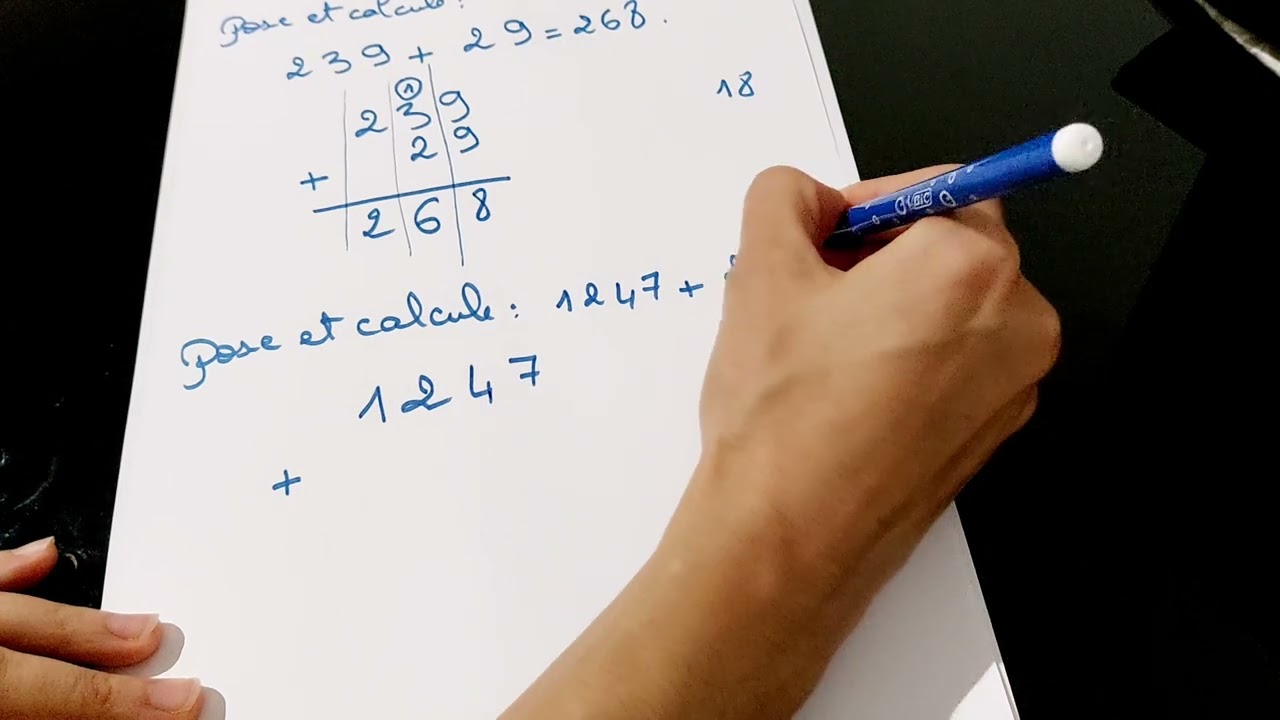 Pose et calcule :
239 + 29 = 268.
1
239
18
29
+
268
Pose et calcule : 1247 +
1247
+
BIC